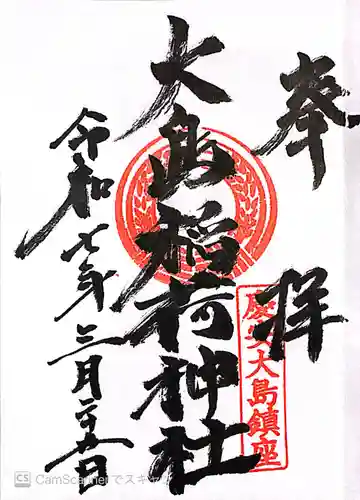 奉拝
慶安大島鎮座
大島稲荷神社
令和七年三月二十五日
CS CamScannerでスキャン